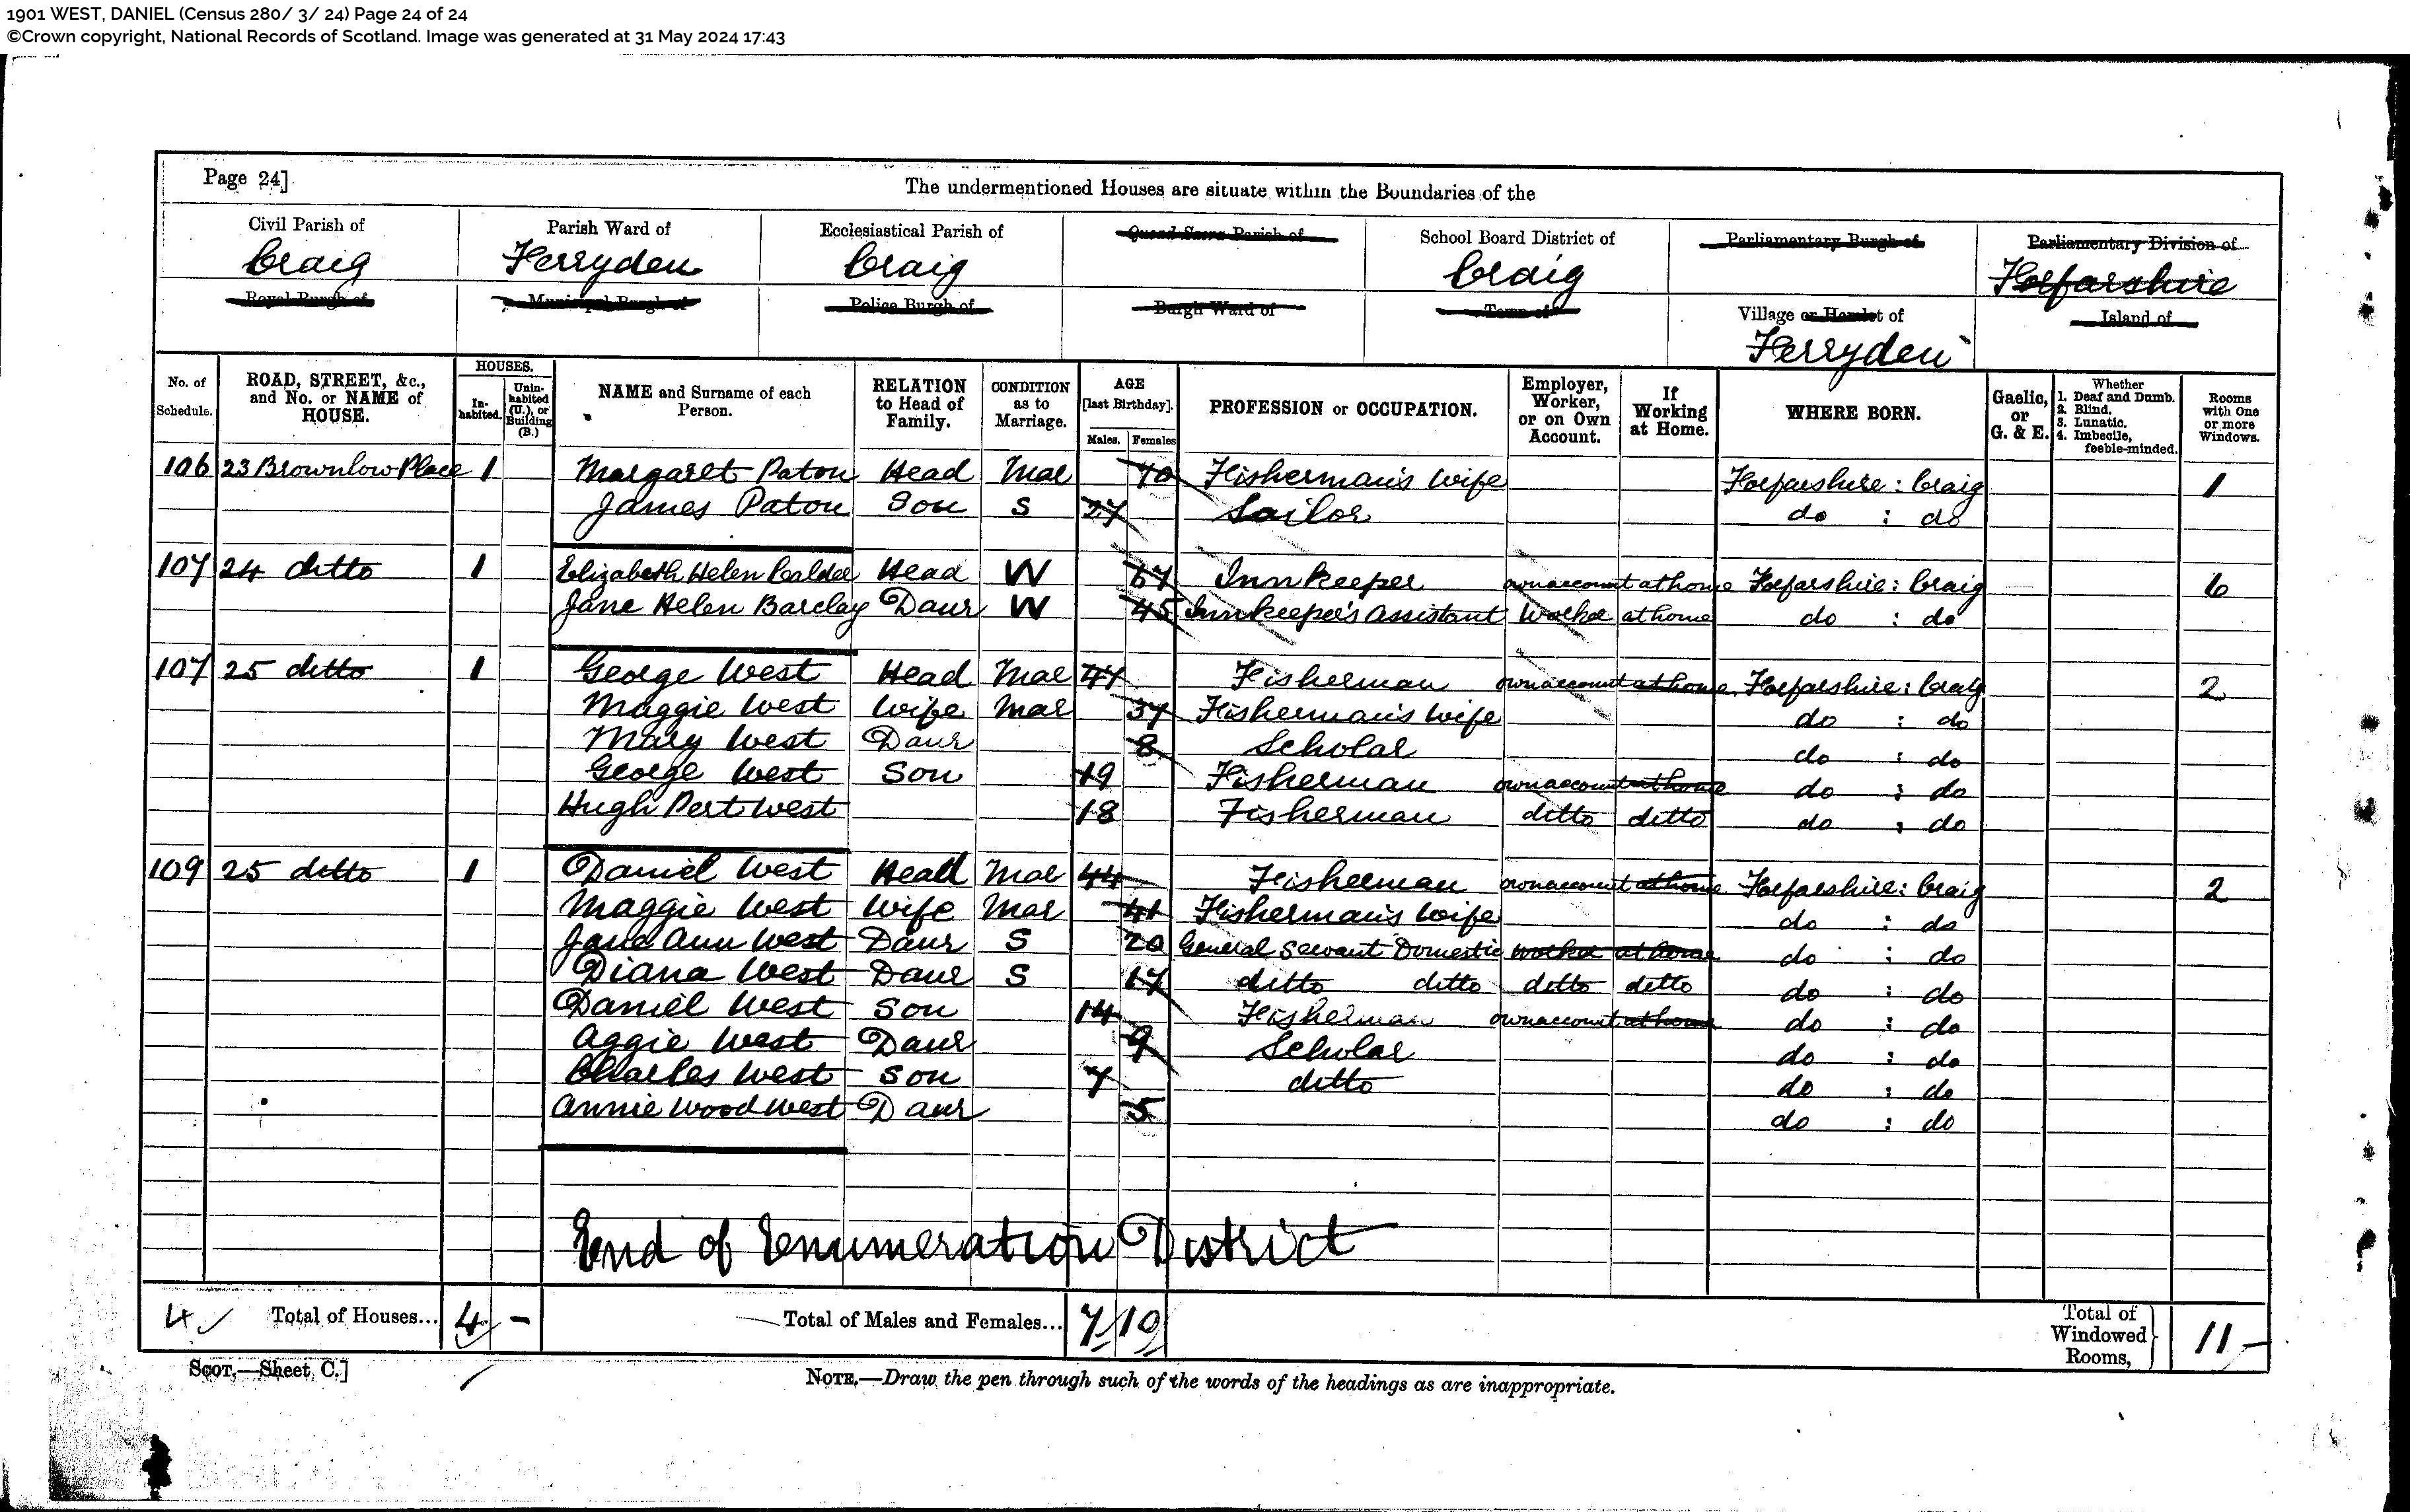 1901 WEST, DANIEL (Census 280/ 3/ 24) Page 24 of 24
©Crown copyright, National Records of Scotland. Image was generated at 31 May 2024 17:43
Page 24]
The undermentioned Houses are situate within the Boundaries of the
Civil Parish of Parish Ward of Ecclesiastical Parish of Quoad Sacra Parish of School Board District of Parliamentary Burgh of Parliamentary Division of
Craig Ferryden Craig Craig Forfarshire
Royal Burgh of Municipal Burgh of Police Burgh of Burgh Ward of Town of Village or Hamlet of Island of
Ferryden
No. of Schedule. ROAD, STREET, &c., and No. or NAME of HOUSE. HOUSES. In-habited. Unin-habited (U.), or Building (B.) NAME and Surname of each Person. RELATION to Head of Family. CONDITION as to Marriage. AGE [last Birthday]. Males. Females PROFESSION or OCCUPATION. Employer, Worker, or on Own Account. If Working at Home. WHERE BORN. Gaelic, or G. & E. Whether 1. Deaf and Dumb. 2. Blind. 3. Lunatic. 4. Imbecile, feeble-minded. Rooms with One or more Windows.
106 23 Brownlow Place 1 Margaret Paton Head Mar 70 Fisherman's wife Forfarshire : Craig 1
James Paton Son S 27 Sailor do : do
107 24 ditto 1 Elizabeth Helen Calder Head W 67 Innkeeper own account at home Forfarshire : Craig 6
Jane Helen Barclay Daur W 45 Innkeeper's Assistant Worker at home do : do
107 25 ditto 1 George West Head Mar 47 Fisherman own account at home Forfarshire : Craig 2
Maggie West Wife Mar 37 Fisherman's wife do : do
Mary West Daur 8 Scholar do : do
George West Son 19 Fisherman own account at home do : do
Hugh Pert West 18 Fisherman ditto ditto do : do
109 25 ditto 1 Daniel West Head Mar 44 Fisherman own account at home Forfarshire : Craig 2
Maggie West Wife Mar 41 Fisherman's wife do : do
Jane Ann West Daur S 20 General Servant Domestic Worker at home do : do
Diana West Daur S 17 ditto ditto ditto ditto do : do
Daniel West Son 14 Fisherman own account at home do : do
Aggie West Daur 9 Scholar do : do
Charles West Son 7 ditto do : do
Annie Wood West Daur 5 do : do
End of Enumeration District
4 Total of Houses... 4 - Total of Males and Females... 7 10 Total of Windowed Rooms, 11
SCOT.—Sheet C.]
NOTE.—Draw the pen through such of the words of the headings as are inappropriate.